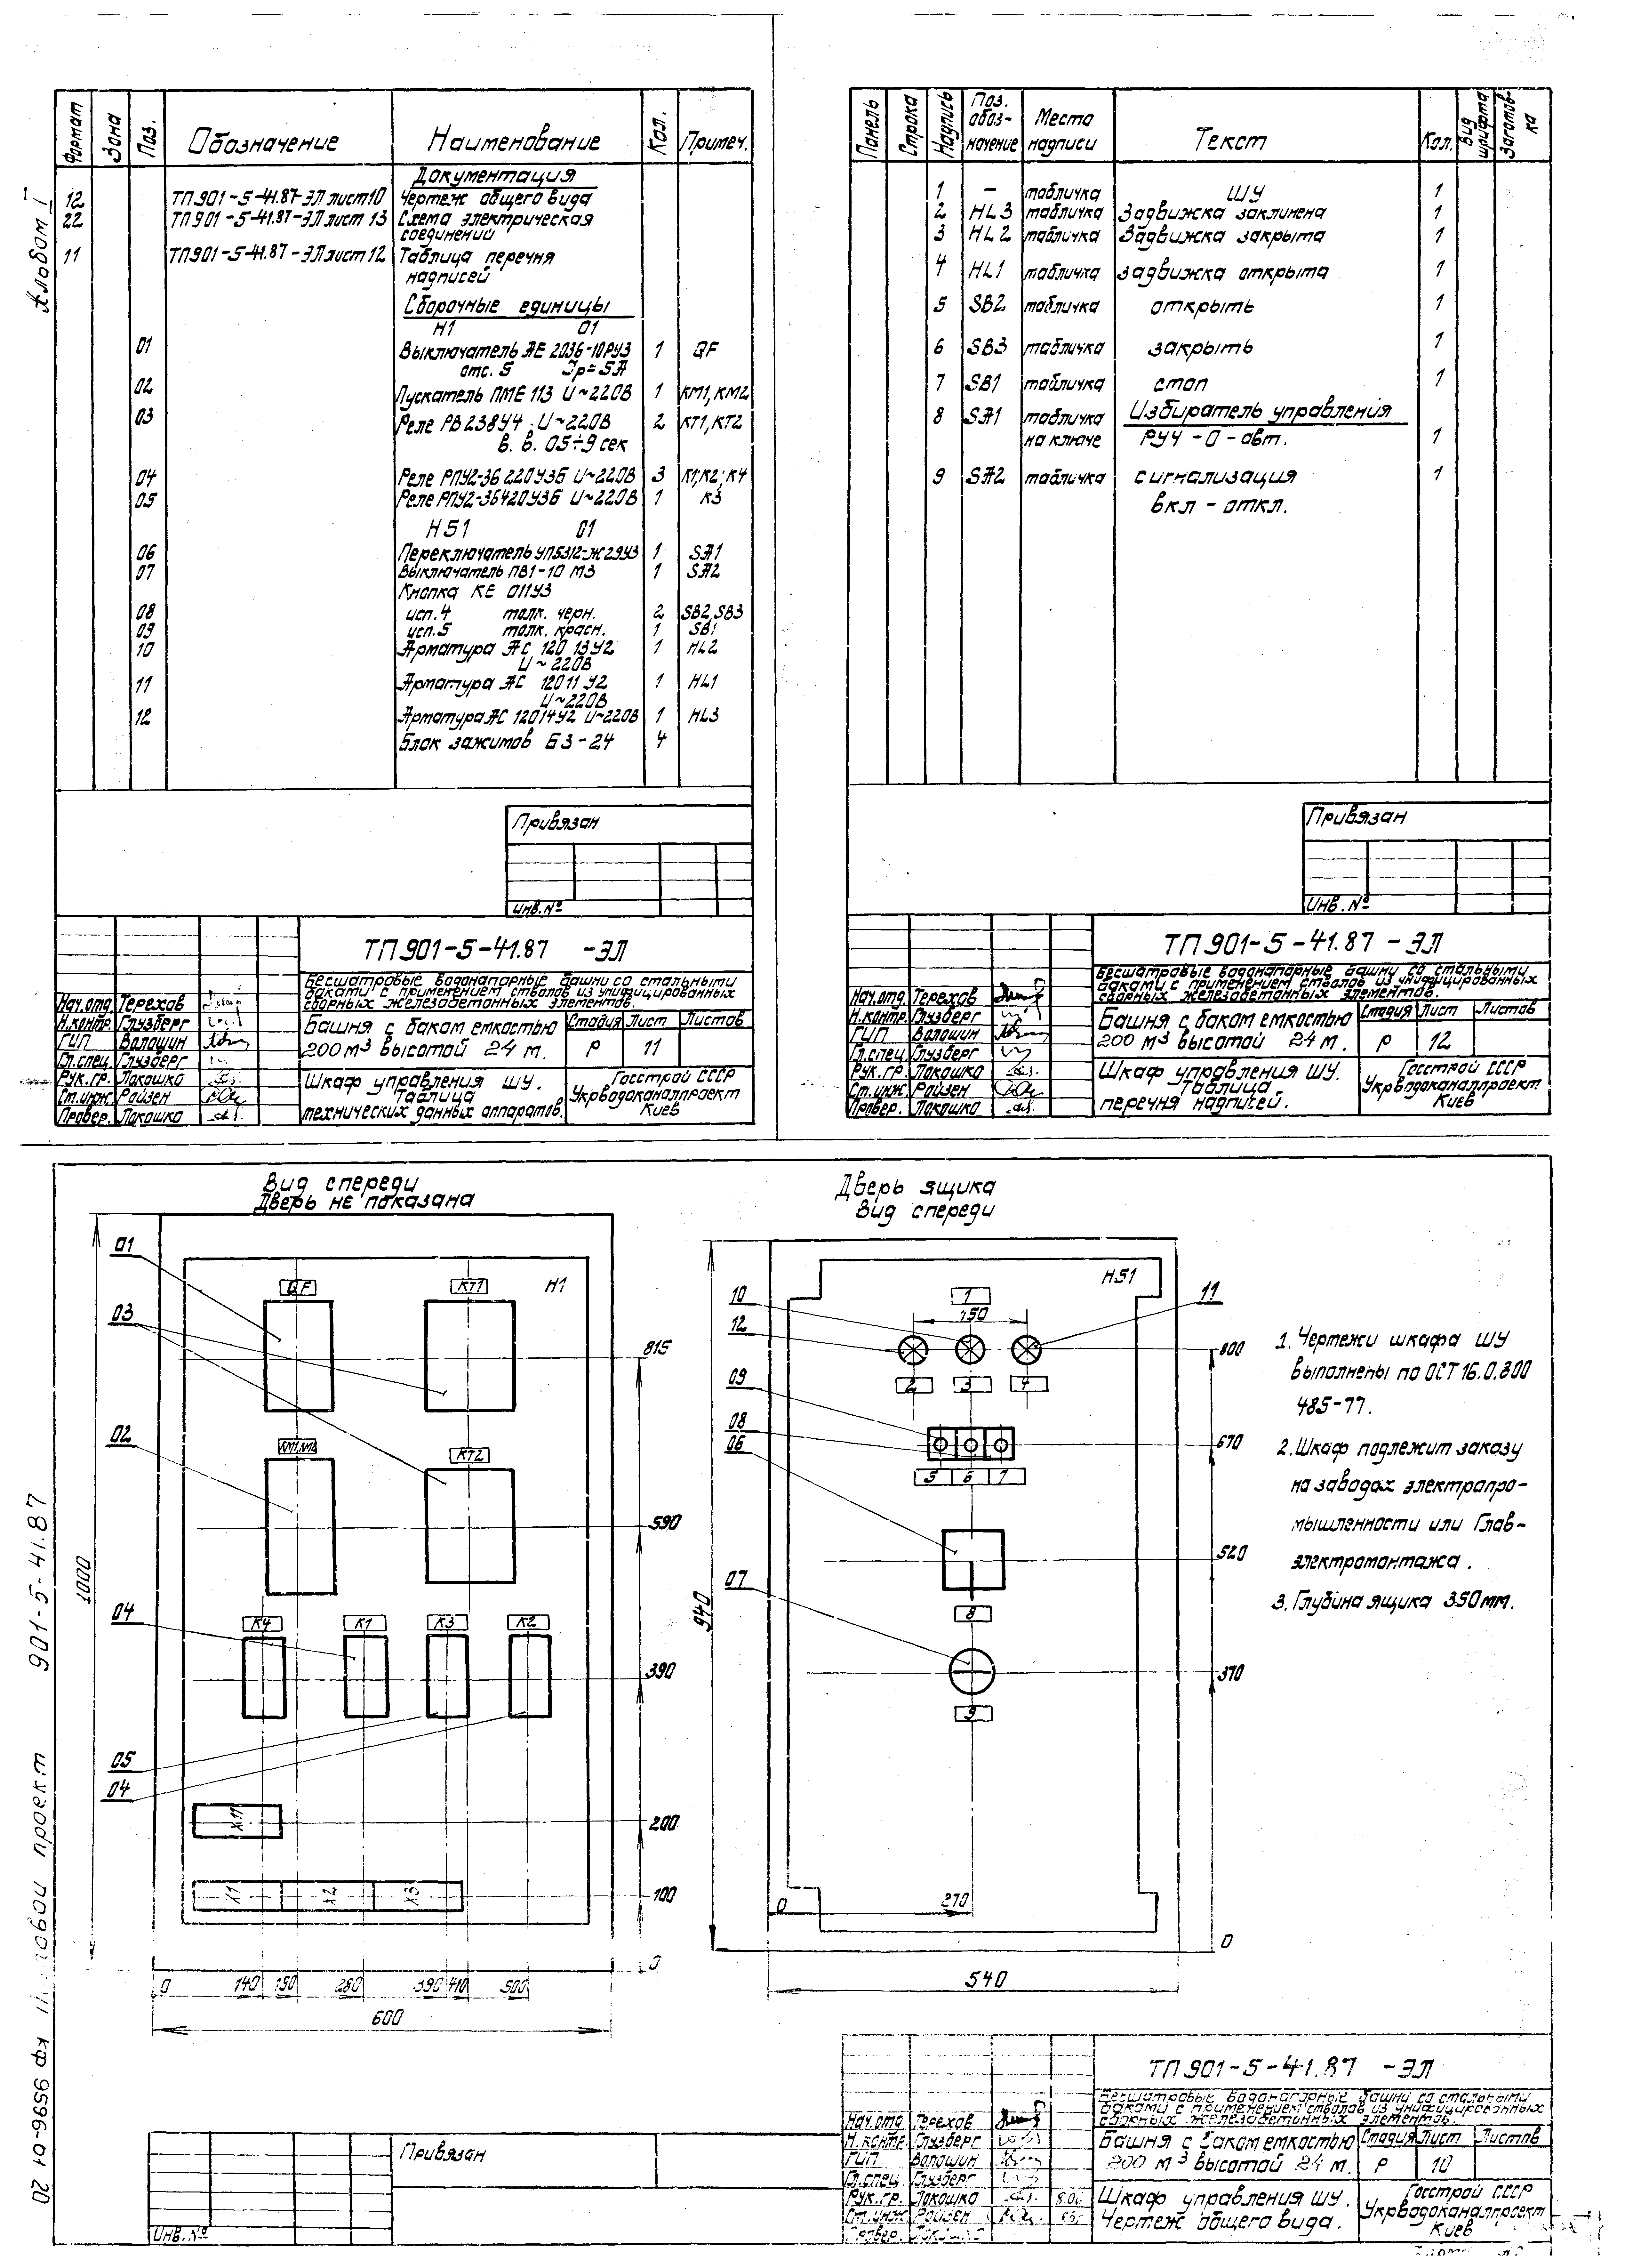 Альбом I
Формат Зона Поз. Обозначение Наименование Кол. Примеч.
Документация
12 ТП901-5-41.87-ЭЛ лист10 Чертеж общего вида
22 ТП901-5-41.87-ЭЛ лист 13 Схема электрическая
соединений
11 ТП901-5-41.87-ЭЛ лист 12 Таблица перечня
надписей
Сборочные единицы
Н1 01
01 Выключатель АЕ 2036-10РУЗ 1 QF
отс. 5 Jр=5А
02 Пускатель ПМЕ 113 U~220В 1 КМ1, КМ2
03 Реле РВ 238У4 U~220В 2 КТ1, КТ2
в. в. 0.5÷9 сек
04 Реле РПУ2-36 220У3Б U~220В 3 К1; К2; К4
05 Реле РПУ2-36420У3Б U~220В 1 К3
Н51 01
06 Переключатель УП5312-Ж29У3 1 SA1
07 Выключатель ПВ1-10 М3 1 SA2
Кнопка КЕ 011У3
08 исп. 4 толк. черн. 2 SB2, SB3
09 исп. 5 толк. красн. 1 SB1
10 Арматура АС 120 13У2 1 HL2
U~220В
11 Арматура АС 12011 У2 1 HL1
U~220В
12 Арматура АС 12014У2 U~220В 1 HL3
Блок зажимов БЗ-24 4
Привязан
Инв. №
ТП901-5-41.87 -ЭЛ
Бесшатровые водонапорные башни со стальными
баками с применением стволов из унифицированных
сборных железобетонных элементов.
Нач.отд. Терехов
Н.контр. Глузберг
ГИП Волошин
Гл.спец. Глузберг
Рук.гр. Локошко
Ст.инж. Ройзен
Провер. Локошко
Башня с баком емкостью
200 м³ высотой 24 м.
Стадия Лист Листов
Р 11
Шкаф управления ШУ.
Таблица
технических данных аппаратов.
Госстрой СССР
Укрводоканалпроект
Киев
Панель Строка Надпись Поз. обоз-начение Место надписи Текст Кол. Вид шрифта Заготов-ка
1 — табличка ШУ 1
2 HL3 табличка Задвижка заклинена 1
3 HL2 табличка Задвижка закрыта 1
4 HL1 табличка задвижка открыта 1
5 SB2 табличка открыть 1
6 SB3 табличка закрыть 1
7 SB1 табличка стоп 1
8 SA1 табличка Избиратель управления
на ключе РУЧ-0-авт. 1
9 SA2 табличка сигнализация 1
вкл-откл.
Привязан
Инв. №
ТП901-5-41.87 -ЭЛ
Бесшатровые водонапорные башни со стальными
баками с применением стволов из унифицированных
сборных железобетонных элементов.
Нач.отд. Терехов
Н.контр. Глузберг
ГИП Волошин
Гл.спец. Глузберг
Рук.гр. Локошко
Ст.инж. Ройзен
Провер. Локошко
Башня с баком емкостью
200 м³ высотой 24 м.
Стадия Лист Листов
Р 12
Шкаф управления ШУ.
Таблица
перечня надписей.
Госстрой СССР
Укрводоканалпроект
Киев
Вид спереди
Дверь не показана
01
03
02
04
05
04
QF КТ1 Н1
КМ1,КМ2 КТ2
К4 К1 К3 К2
Х11
Х1 Х2 Х3
815
590
390
200
100
0
1000
0 140 190 280 390 410 500
600
Дверь ящика
Вид спереди
Н51
10 1 11
12 150
2 3 4
09
08
06
5 6 7
07
8
9
800
670
520
370
0
940
0 270
540
1. Чертежи шкафа ШУ
выполнены по ОСТ 16.0.800
485-77.
2. Шкаф подлежит заказу
на заводах электропро-
мышленности или Глав-
электромонтажа.
3. Глубина ящика 350мм.
проект 901-5-41.87
кф 9596-01 20
Привязан
Инв. №
ТП901-5-41.87 -ЭЛ
Бесшатровые водонапорные башни со стальными
баками с применением стволов из унифицированных
сборных железобетонных элементов.
Нач.отд. Терехов
Н.контр. Глузберг
ГИП Волошин
Гл.спец. Глузберг
Рук.гр. Локошко
Ст.инж. Ройзен
Провер. Локошко
Башня с баком емкостью
200 м³ высотой 24 м.
Стадия Лист Листов
Р 10
Шкаф управления ШУ.
Чертеж общего вида.
Госстрой СССР
Укрводоканалпроект
Киев